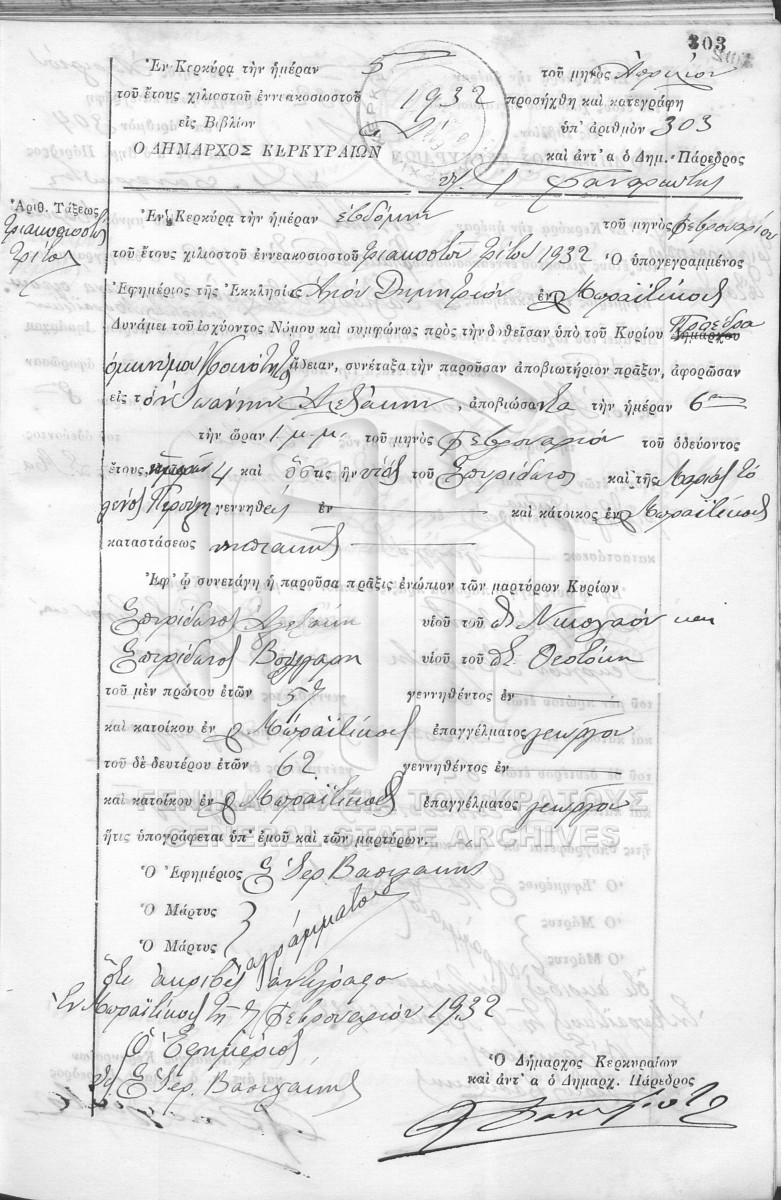 303
Ἐν Κερκύρᾳ τὴν ἡμέραν 5 τοῦ μηνὸς Ἀπριλίου
τοῦ ἔτους χιλιοστοῦ ἐννεακοσιοστοῦ 1932 προσήχθη καὶ κατεγράφη
εἰς Βιβλίον ὑπ' ἀριθμὸν 303
Ο ΔΗΜΑΡΧΟΣ ΚΕΡΚΥΡΑΙΩΝ καὶ ἀντ' α ὁ Δημ. Πάρεδρος
Ἀριθ. Τάξεως
τριακοσιοστὸς
τρίτος
Ἐν Κερκύρᾳ τὴν ἡμέραν ἑβδόμην τοῦ μηνὸς Φεβρουαρίου
τοῦ ἔτους χιλιοστοῦ ἐννεακοσιοστοῦ τριακοστοῦ 1932 Ὁ ὑπογεγραμμένος
Ἐφημέριος τῆς Ἐκκλησίας Ἁγίου Δημητρίου ἐν Μωραϊτίκοις
Δυνάμει τοῦ ἰσχύοντος Νόμου καὶ συμφώνως πρὸς τὴν δοθεῖσαν ὑπὸ τοῦ Κυρίου Δημάρχου Προέδρου
ὁμωνύμου Κοινότητος ἄδειαν, συνέταξα τὴν παροῦσαν ἀποβιωτήριον πρᾶξιν, ἀφορῶσαν
εἰς τὸν Ἰωάννην Ἀλεξάκην, ἀποβιώσαντα τὴν ἡμέραν 6ην
τὴν ὥραν 1 μ.μ. τοῦ μηνὸς Φεβρουαρίου τοῦ ὁδεύοντος
ἔτους, ἡμερῶν 4 καὶ ὅστις ἦν υἱὸς τοῦ Σπυρίδωνος καὶ τῆς Μαρίας τὸ
γένος γεννηθεὶς ἐν καὶ κάτοικος ἐν Μωραϊτίκοις
καταστάσεως νηπιακῆς
Ἐφ' ᾧ συνετάγη ἡ παροῦσα πρᾶξις ἐνώπιον τῶν μαρτύρων Κυρίων
Σπυρίδωνος Ἀλεξάκη υἱοῦ τοῦ Νικολάου καὶ
Σπυρίδωνος Βούλγαρη υἱοῦ τοῦ Θεοτόκη
τοῦ μὲν πρώτου ἐτῶν 57 γεννηθέντος ἐν
καὶ κατοίκου ἐν Μωραϊτίκοις ἐπαγγέλματος γεωργοῦ
τοῦ δὲ δευτέρου ἐτῶν 62 γεννηθέντος ἐν
καὶ κατοίκου ἐν Μωραϊτίκοις ἐπαγγέλματος γεωργοῦ
ΓΕΝΙΚΑ ΑΡΧΕΙΑ ΤΟΥ ΚΡΑΤΟΥΣ
GENERAL STATE ARCHIVES
ἥτις ὑπογράφεται ὑπ' ἐμοῦ καὶ τῶν μαρτύρων.
Ὁ Ἐφημέριος Ἱερ. Βασιλάκης
Ὁ Μάρτυς
Ὁ Μάρτυς ἀγράμματοι
Ὅτι ἀκριβὲς ἀντίγραφο
Ἐν Μωραϊτίκοις τῇ 7 Φεβρουαρίου 1932
Ὁ Ἐφημέριος
Ἱερ. Βασιλάκης
Ὁ Δήμαρχος Κερκυραίων
καὶ ἀντ' α ὁ Δημαρχ. Πάρεδρος